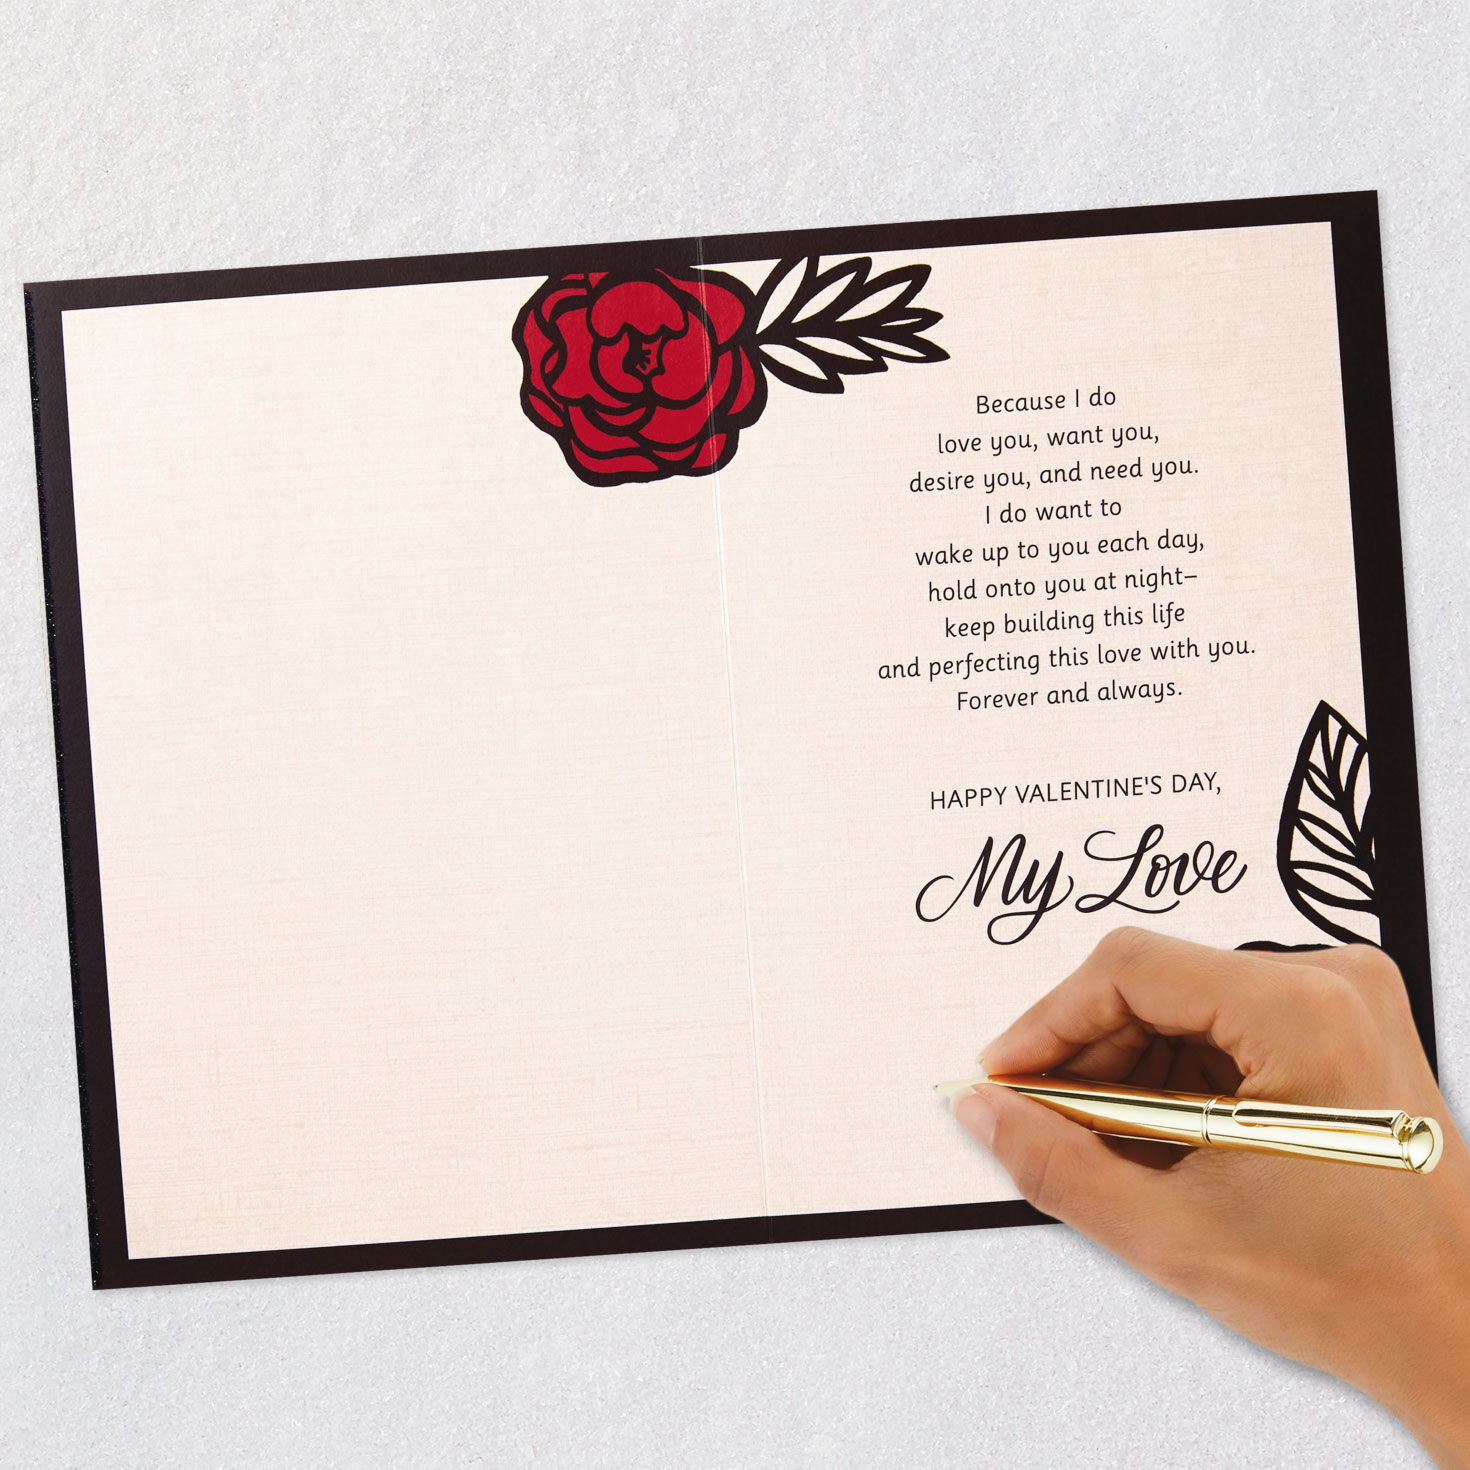 Because I do
love you, want you,
desire you, and need you.
I do want to
wake up to you each day,
hold onto you at night–
keep building this life
and perfecting this love with you.
Forever and always.
HAPPY VALENTINE'S DAY,
My Love